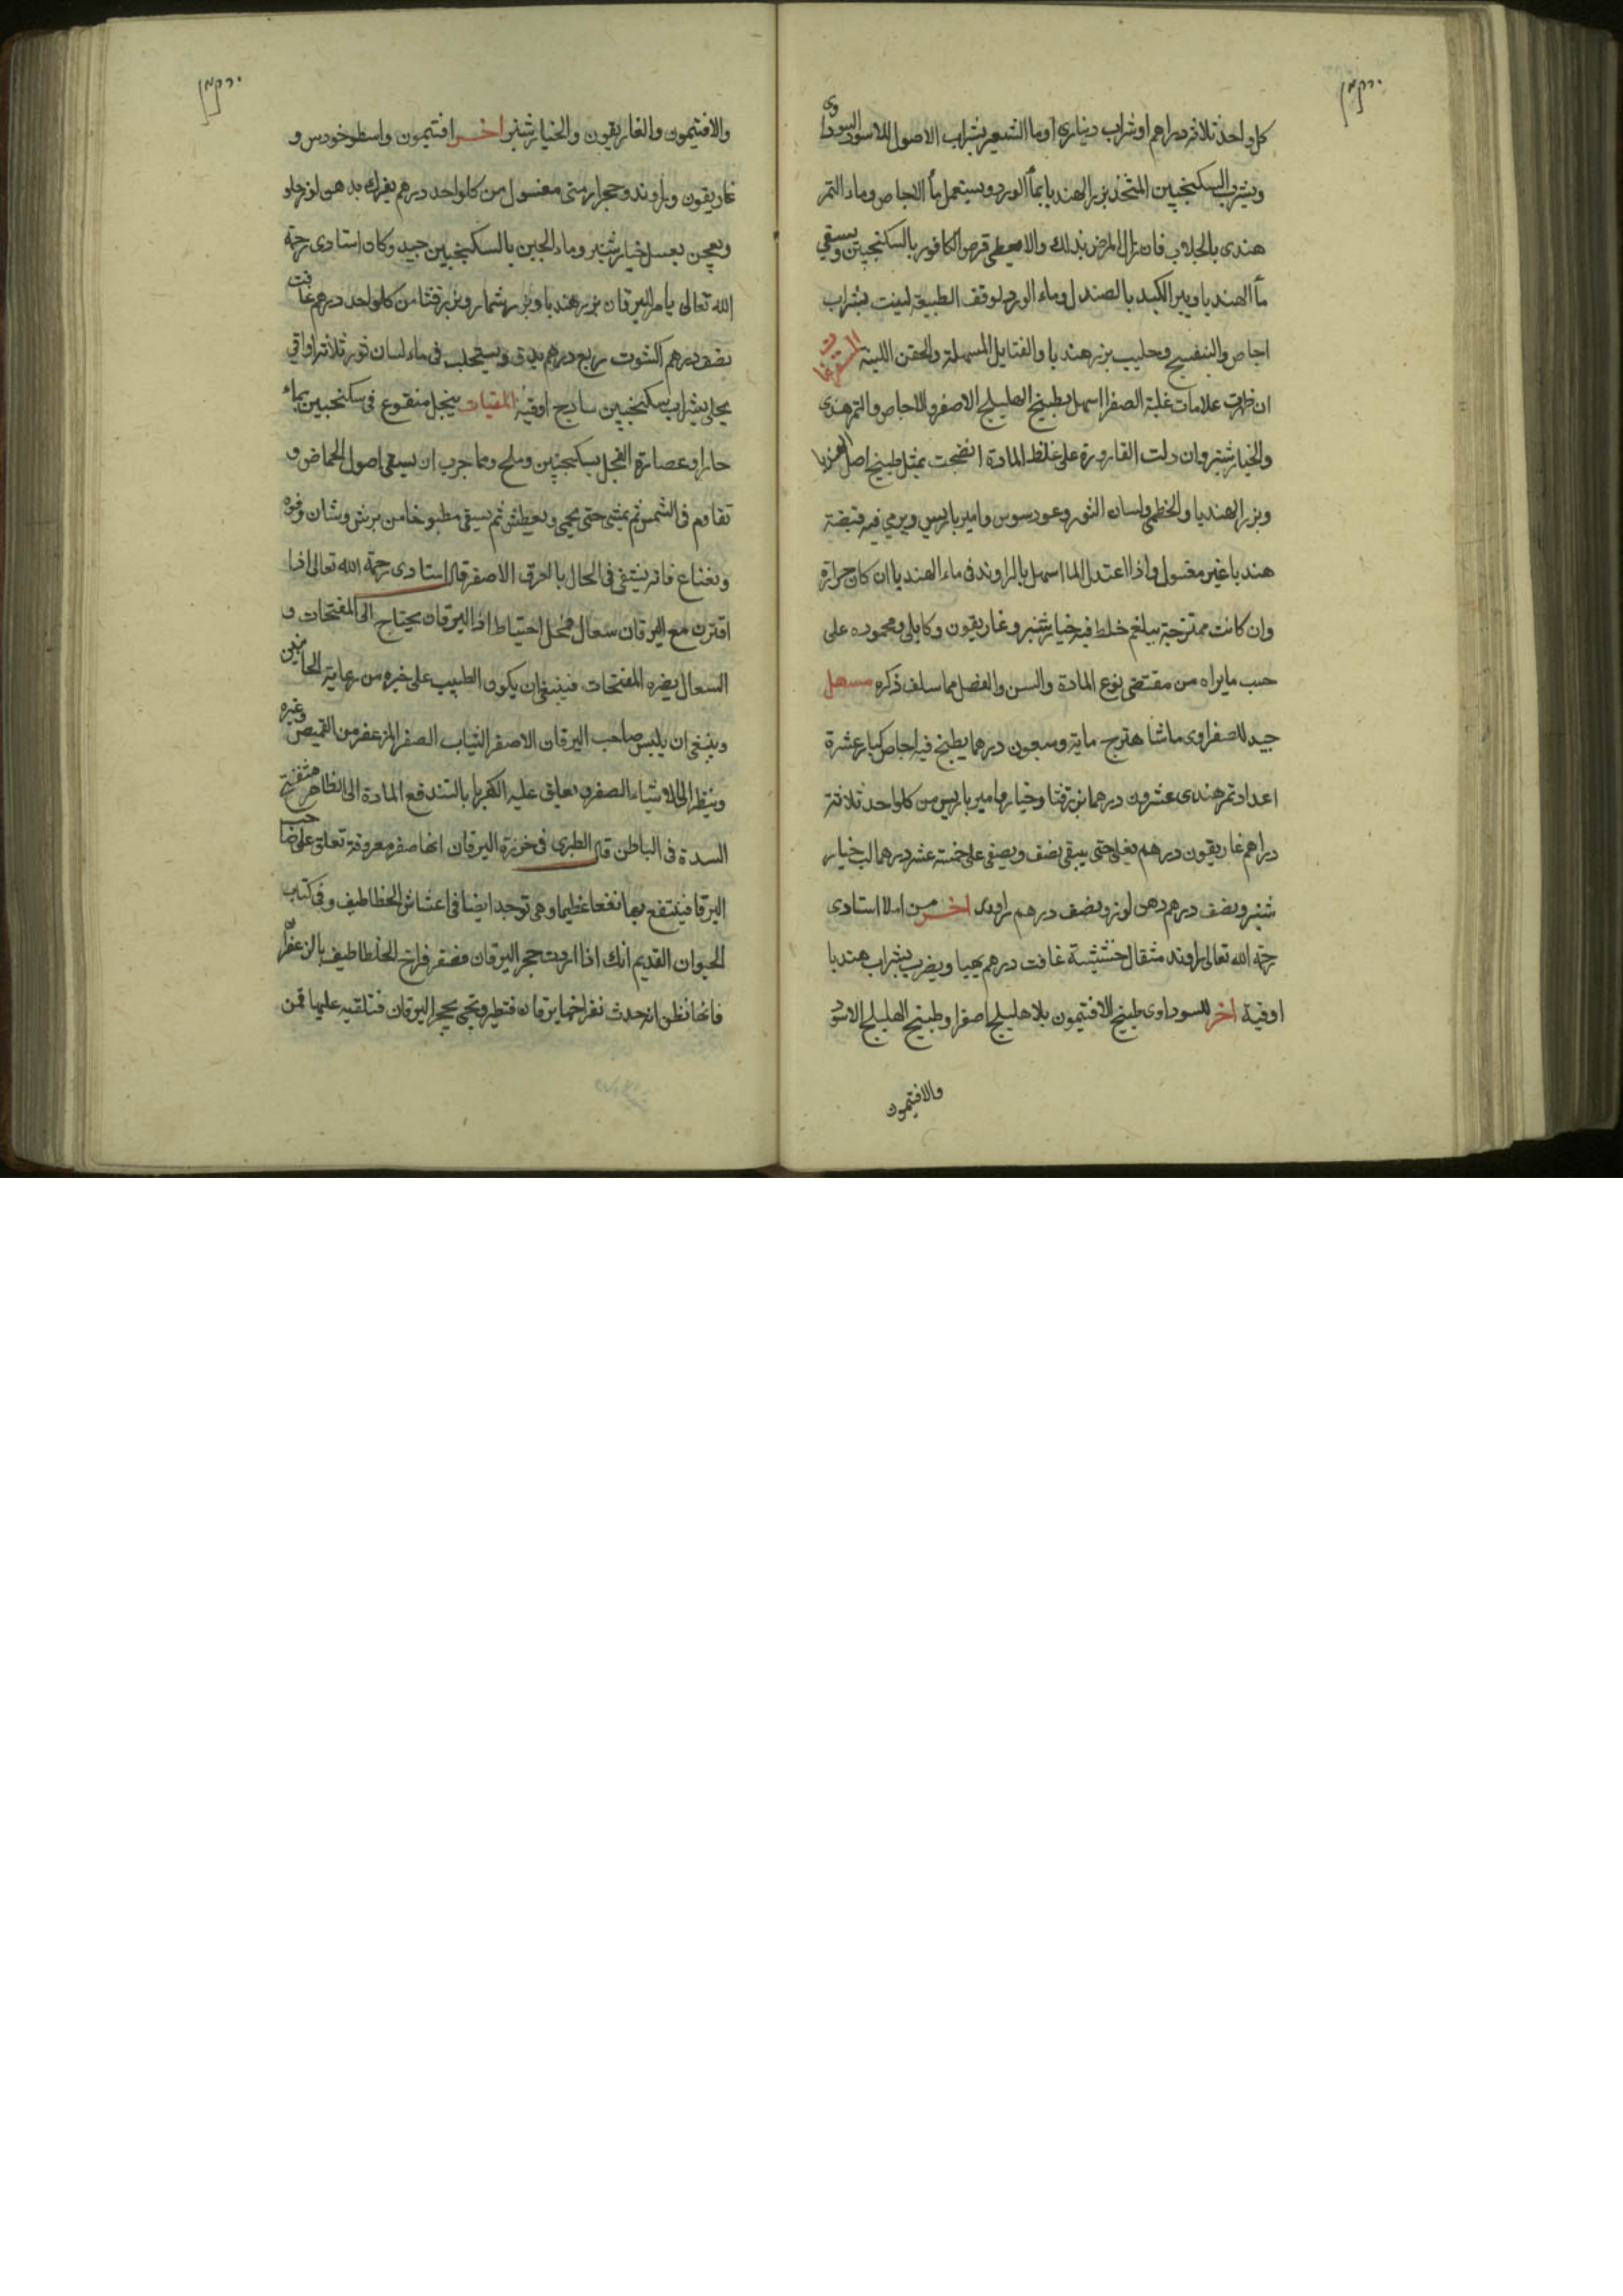 يرقان
كل واحد ثلاثة دراهم او شراب ديناري او ما الشعير بشراب الاصول للاسود السوداوى
ويشرب السكنجبين المتخذ بزر الهندبا بمآ الورد ويستعمل مآ الاجاص وماء التمر
هندى بالجلاب فان زال المرض بذلك والا فيعطى قرص الكافور بالسكنجبين ويسقي
مآ الهندبا ويبرد الكبد بالصندل وماء الورد لوقف الطبيعة لينت بشراب
اجاص والبنفسج وحليب بزر هندبا والفتايل المسهلة والحقن اللينة المستفرغات
ان ظهرت علامات غلبة الصفرا اسهل بطبيخ الهليلج الاصفر والاجاص والتمر هندى
والخيار شنبر وان دلت القارورة على غلظ المادة انضجت بمثل طبيخ اصل الهندبا
وبزر الهندبا والخطمى ولسان الثور وعود سوس وامير باريس ويرمي فيه قبضة
هندبا غير مغسول واذا اعتدل الما اسهل بالراوند فى ماء الهندبا ان كان حرارة
وان كانت ممتزجة ببلغم خلط فيه خيار شنبر وغاريقون وكابلى ومحموده على
حسب مايراه من مقتضى نوع المادة والسن والفصل مما سلف ذكره مسهل
جيد للصفراوى ماشا هترج ماية وسبعون درهما يطبخ فيه اجاص كبار عشرة
اعداد تمر هندى عشرون درهما بزر قثا وخيار وامير باريس من كلواحد ثلاثة
دراهم غاريقون درهم يغلى حتى يبقى نصف ويصفى على خمسة عشر درهما لب خيار
شنبر ونصف درهم دهن لوز ونصف درهم راوند اخر من املا استادى
رحمة الله تعالى راوند مثقال حشيشة غافت درهم يحبا ويضرب بشراب هندبا
اوقية اخر للسوداوى طبيخ الافتيمون بلا هليلج اصفر او طبيخ الهليلج الاسود
والافتيمون
يرقان
والافتيمون والغاريقون والخيار شنبر اخر افتيمون واسطوخودس و
غاريقون وراوند وحجر ارمنى مغسول من كلواحد درهم يفرك بدهن لوز حلو
ويعجن بعسل خيار شنبر وماء الجبن بالسكنجبين جيد وكان استادى رحمة
الله تعالى يامر لليرقان بزر هندبا وبزر شمار وبزر قثا من كلواحد درهم غافت
نصف درهم اكشوت ربع درهم يدق ويستحلب فى ماء لسان ثور ثلاثة اواقي
يحلى بشراب سكنجبين سادج اوقية المقيات بنجل منقوع فى سكنجبين بماء
حار او عصارة الفجل بسكنجبين وملح ومما جرب ان يسقى اصول الحماض و
تقاوم فى الشمس ثم يمشى حتى يحمى ويعطش ثم يسقى مطبوخا من برشاوشان وفوه
ونعناع فانه ينتفى فى الحال بالعرق الاصفر قال استادى رحمة الله تعالى اذا
اقترن مع اليرقان سعال فمحل احتياط اذ اليرقان يحتاج الى المفتحات و
السعال يضره المفتحات فينبغى ان يكون الطبيب على خبره من رعاية الجانبين
وينبغى ان يلبس صاحب اليرقان الاصفر الثياب الصفر المزعفر من القميص وغيره
وينظر الى الاشياء الصفر و يعلق عليه الكهربا بالتندفع المادة الى الظاهر متفتح
السدة فى الباطن قال الطبرى فى خرزة اليرقان انها صفر معروفة تعلق على صاحب
اليرقا فينتفع بها نفعا عظيما وهى توجد ايضا فى اعشاش الخطاطيف وفى كتاب
الحيوان القديم انك اذا اردت حجر اليرقان فصفر فراخ الخطاطيف بالزعفران
فانها تظن انه حدث نفراخها يرقان فتطير وتجى بحجر اليرقان فتلقيه عليها فمن